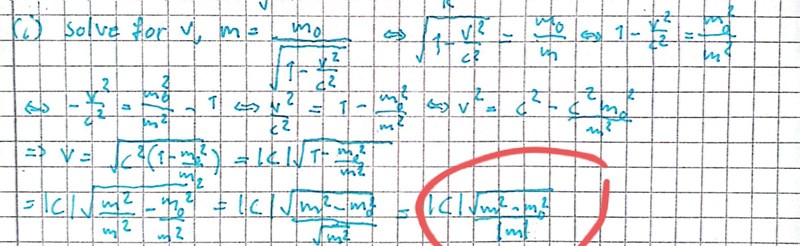 (i) solve for v, m = m₀/√(1 - v²/c²) ⇔ √(1 - v²/c²) = m₀/m ⇔ 1 - v²/c² = m₀²/m²
⇔ -v²/c² = m₀²/m² - 1 ⇔ v²/c² = 1 - m₀²/m² ⇔ v² = c² - c²m₀²/m²
⇒ v = √(c²(1 - m₀²/m²)) = |c|√(1 - m₀²/m²)
= |c|√(m²/m² - m₀²/m²) = |c|√(m² - m₀²)/√m² = |c|√(m² - m₀²)/|m|